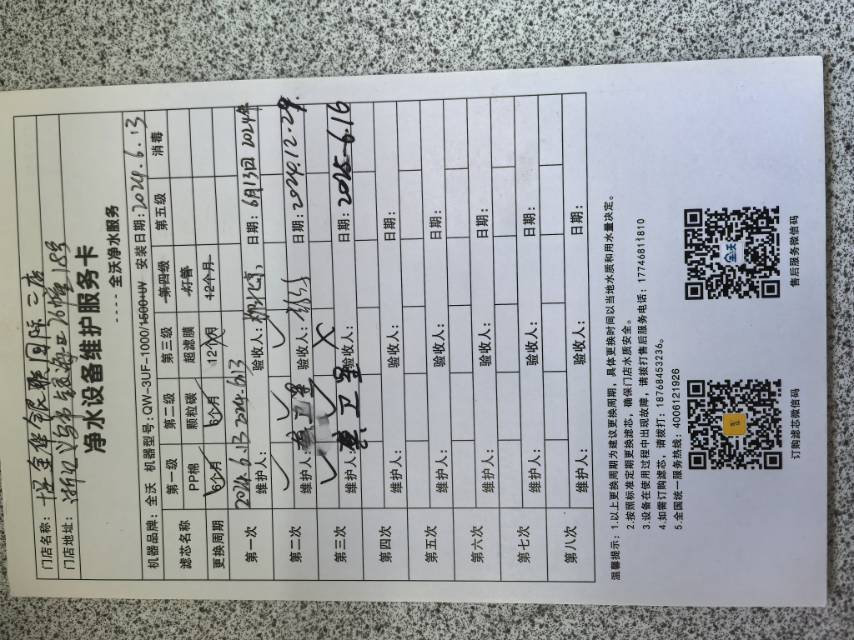 门店名称：
门店地址：
净水设备维护服务卡
---- 全沃净水服务
机器品牌：全沃 机器型号：QW-3UF-1000/1500+UV 安装日期：2024.6.13
滤芯名称 第一级 第二级 第三级 第四级 第五级 消毒
PP棉 颗粒碳 超滤膜 灯管
更换周期 6个月 6个月 12个月 12个月
第一次 2024.6.13 2024.6.13
维护人： 验收人： 日期：6月13日 2024年
第二次
维护人： 验收人： 日期：2024.12.29.
第三次
维护人： 卫 验收人： 日期：2025-6.16
第四次 维护人： 验收人： 日期：
第五次 维护人： 验收人： 日期：
第六次 维护人： 验收人： 日期：
第七次 维护人： 验收人： 日期：
第八次 维护人： 验收人： 日期：
温馨提示：1.以上更换周期为建议更换周期，具体更换时间以当地水质和用水量决定。
2.按照标准定期更换滤芯，确保门店水质安全。
3.设备在使用过程中出现故障，请拨打售后服务电话：17746811810
4.如需订购滤芯，请拨打：18768453236。
5.全国统一服务热线：4006121926
全沃
订购滤芯微信码
售后服务微信码